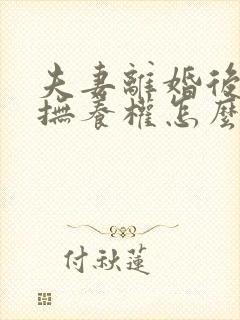 夫妻離婚後
撫養權怎麼
付秋蓮